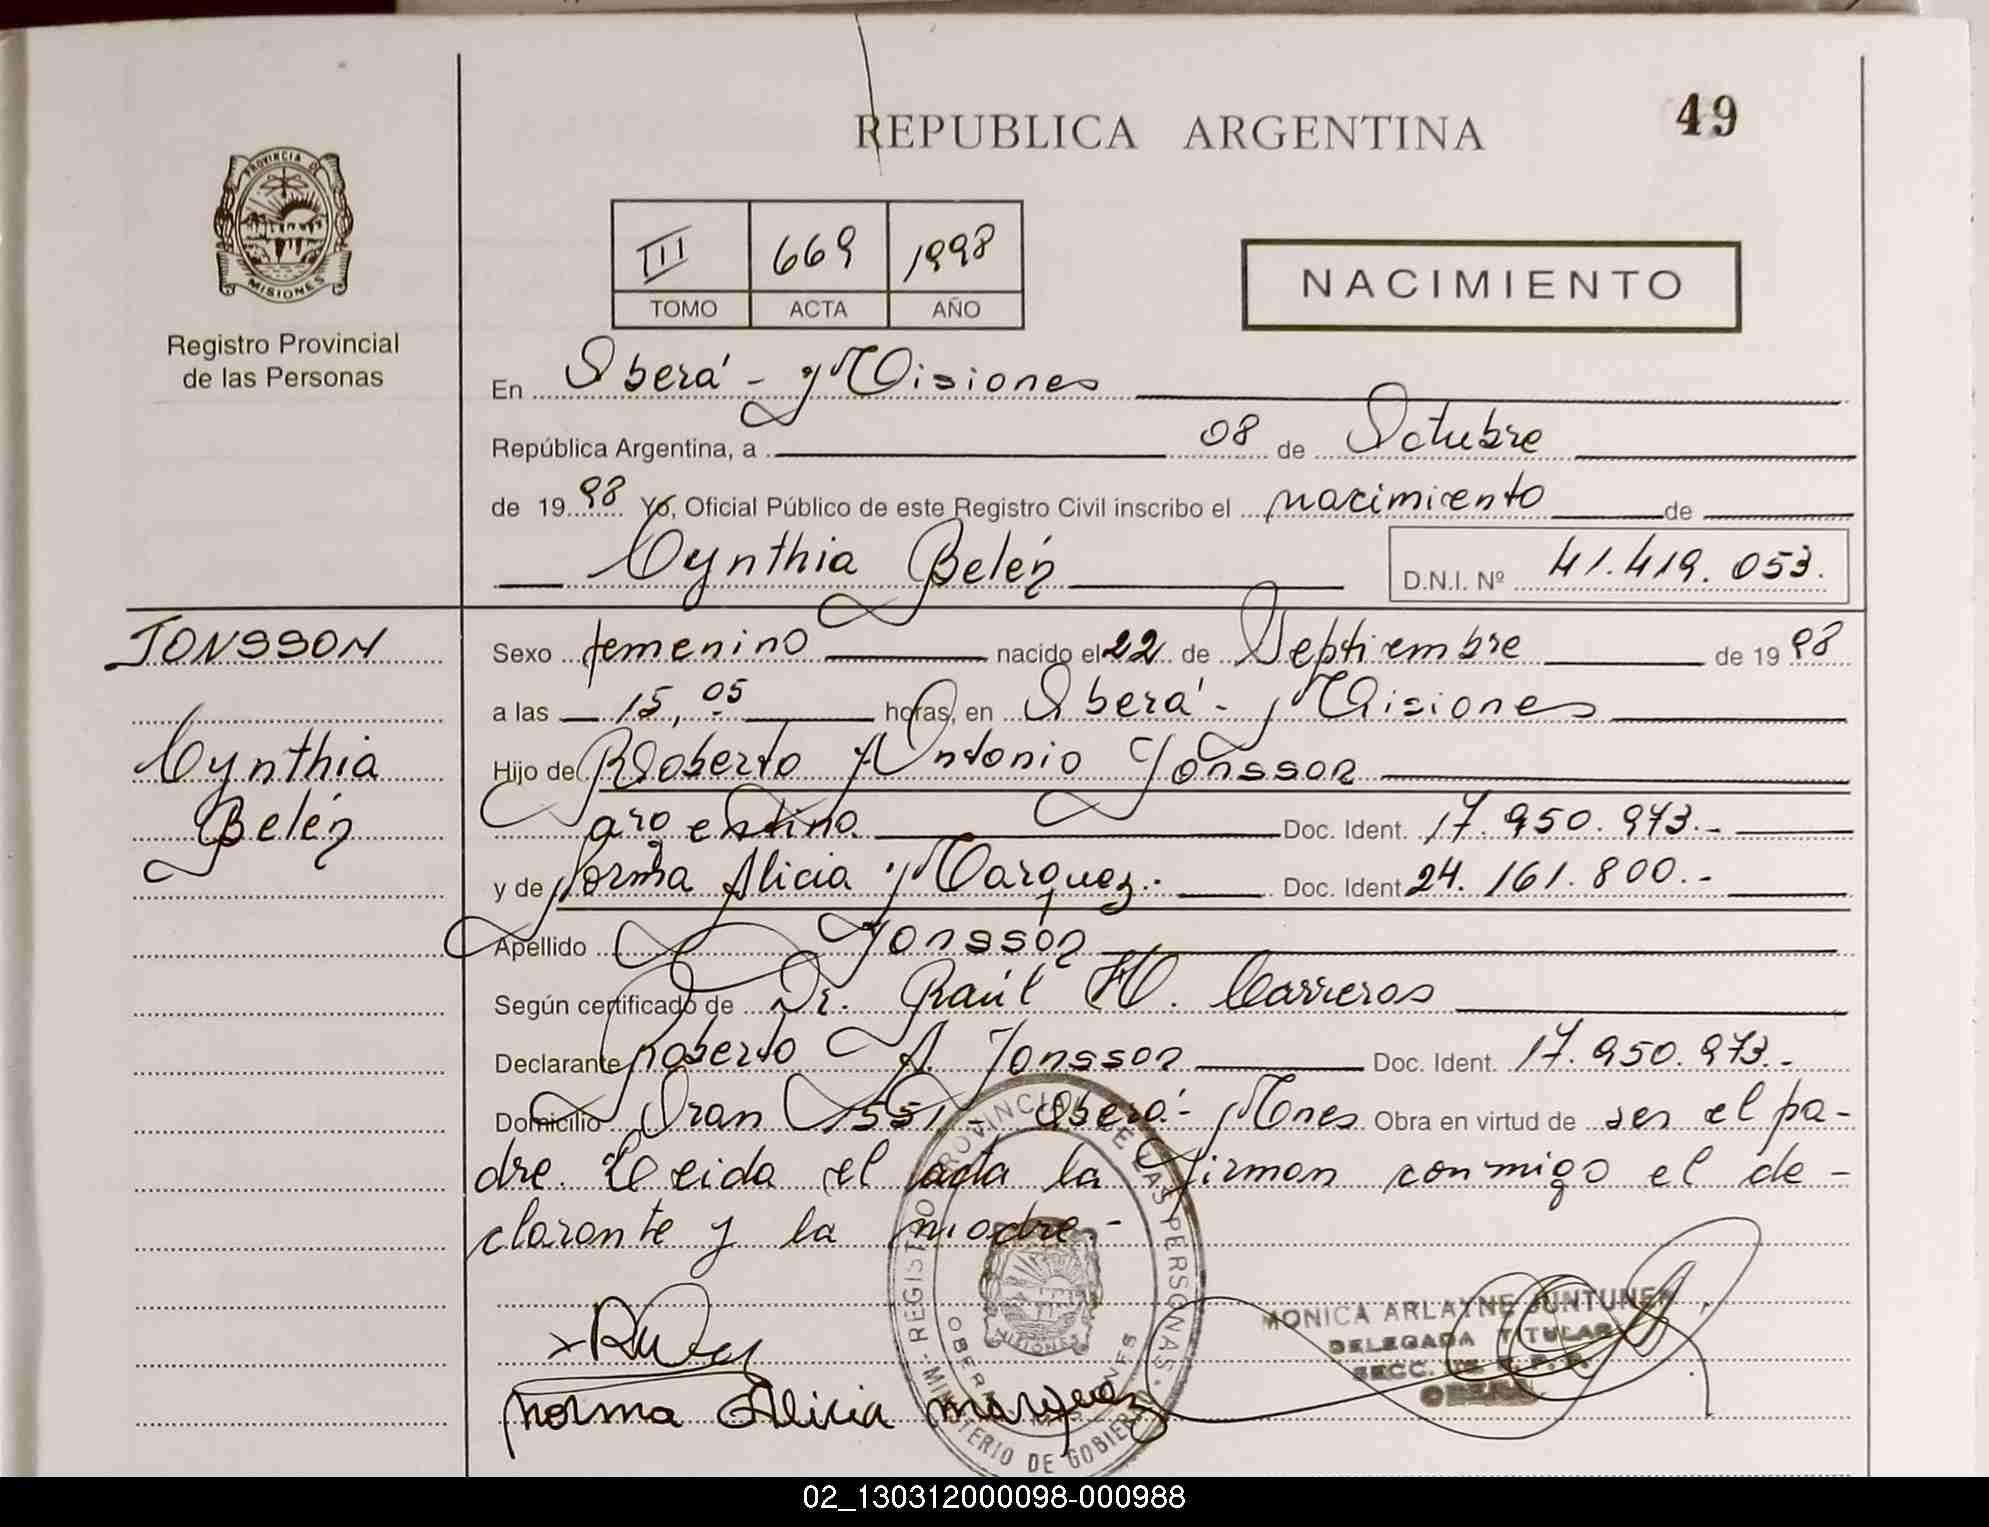 49
REPUBLICA ARGENTINA
PROVINCIA DE
MISIONES
Registro Provincial
de las Personas
III 669 1998
TOMO ACTA AÑO
NACIMIENTO
En Oberá - Misiones
República Argentina, a 08 de Octubre
de 1998 Yo, Oficial Público de este Registro Civil inscribo el nacimiento de
Cynthia Belén D.N.I. Nº 41.419.053.
JONSSON
Cynthia
Belén
Sexo femenino nacido el 22 de Septiembre de 1998
a las 15,05 horas, en Oberá - Misiones
Hijo de Roberto Antonio Jonsson
argentino Doc. Ident. 17.950.973.-
y de Norma Alicia Marquez.- Doc. Ident 24.161.800.-
Apellido Jonsson
Según certificado de Dr. Raúl H. Carreras
Declarante Roberto A. Jonsson Doc. Ident. 17.950.973.-
Domicilio Oran 1551 - Oberá - Mnes Obra en virtud de ser el pa-
dre. Leida el acta la firman conmigo el de-
clarante y la madre.-
REGISTRO PROVINCIAL DE LAS PERSONAS - MINISTERIO DE GOBIERNO
OBERA MISIONES
MISIONES
MONICA ARLAYNE JUNTUNEN
DELEGADA TITULAR
SECC. DE R. P. P.
OBERA
Norma Alicia Marquez
02_130312000098-000988